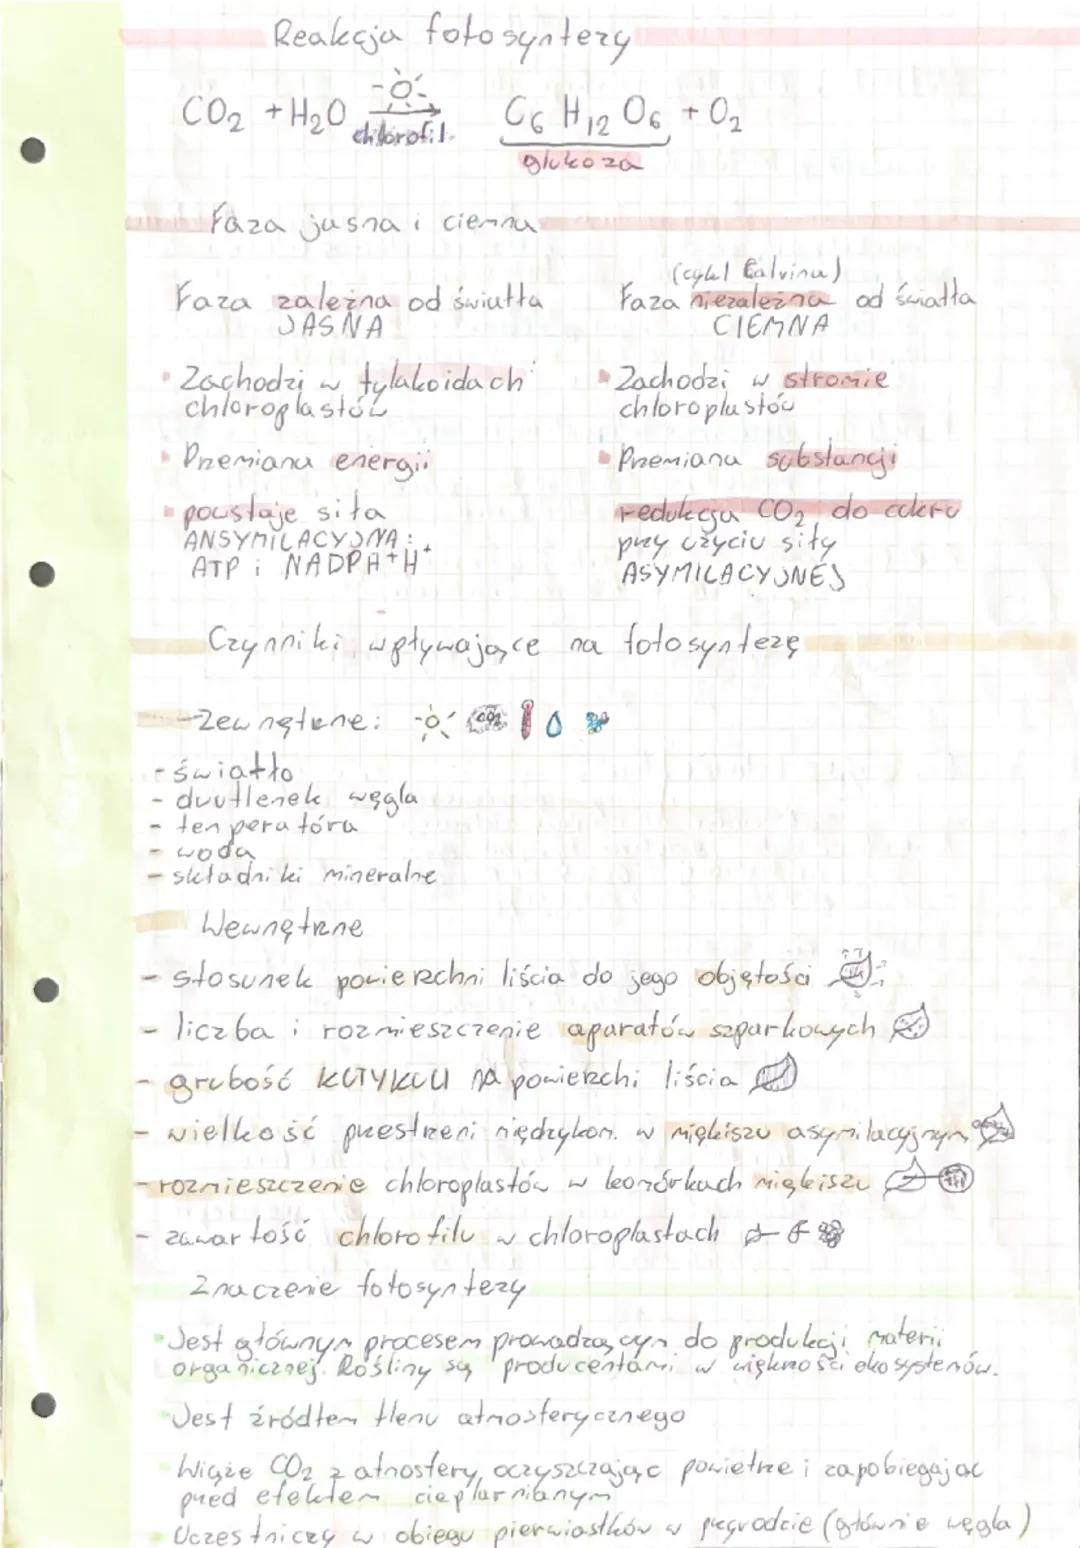 Reakcja fotosyntezy
CO2 + H2O chlorofil C6 H12 O6 + O2
glukoza
Faza jasna i ciemna
(cykl Calvina)
Faza zależna od światła
JASNA
Faza niezależna od światła
CIEMNA
Zachodzi w tylakoidach
chloroplastów
Zachodzi w stromie
chloroplastów
Przemiana energii
Przemiana substancji
powstaje siła
ANSYMILACYJNA:
ATP i NADPH+H+
redukcja CO2 do cukru
przy użyciu siły
ASYMILACYJNEJ
Czynniki wpływające na fotosyntezę
-Zewnętrzne: CO2
- światło
- dwutlenek węgla
- temperatóra
- woda
- składniki mineralne
Wewnętrzne
- stosunek powierzchni liścia do jego objętości
- liczba i rozmieszczenie aparatów szparkowych
- grubość KUTYKULI NA powierzchi liścia
- wielkość przestrzeni międzykom. w miękiszu asymilacyjnym
- rozmieszczenie chloroplastów w komórkach miękiszu
- zawartość chlorofilu w chloroplastach
Znaczenie fotosyntezy
Jest głównym procesem prowadzącym do produkcji materii
organicznej. Rośliny są producentami w większości ekosystemów.
Jest źródłem tlenu atmosferycznego
Wiąże CO2 z atmosfery, oczyszczając powietrze i zapobiegając
przed efektem cieplarnianym
Uczestniczy w obiegu pierwiastków w przyrodzie (głównie węgla)